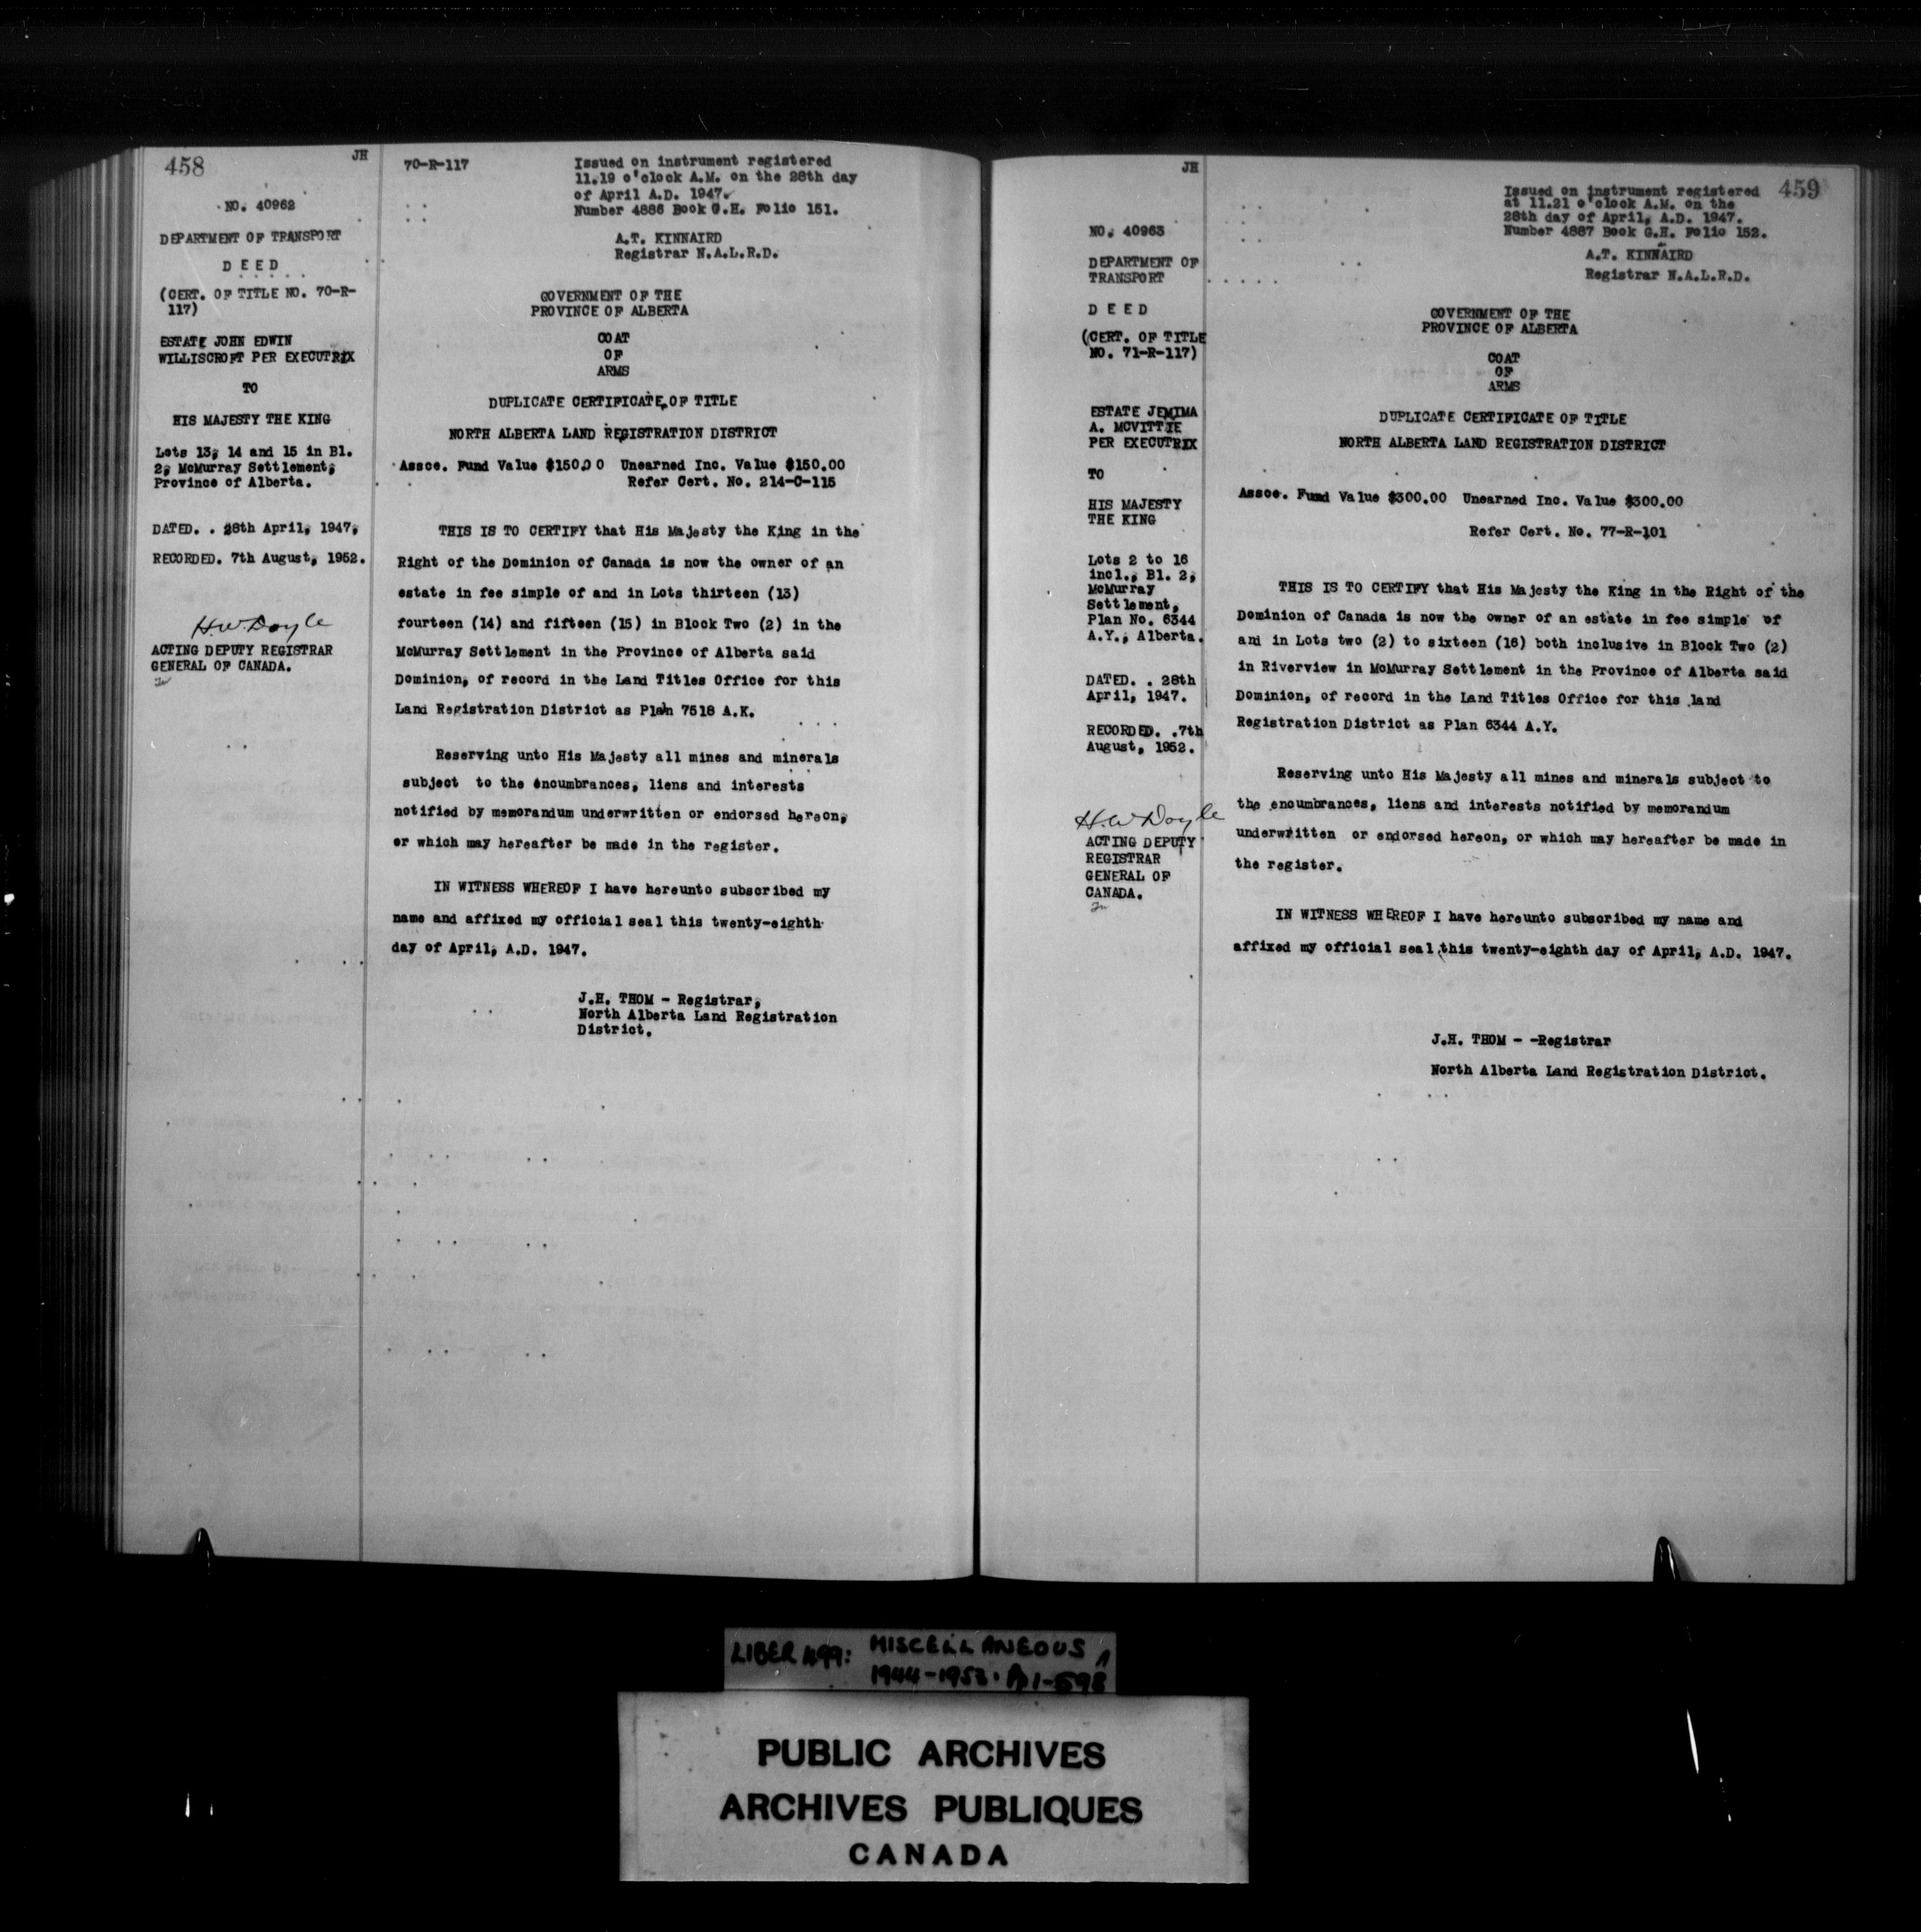 458
JH
NO. 40962
DEPARTMENT OF TRANSPORT
D E E D
(CERT. OF TITLE NO. 70-R-
117)
ESTATE JOHN EDWIN
WILLISCROFT PER EXECUTRIX
TO
HIS MAJESTY THE KING
Lots 13, 14 and 15 in Bl.
2, McMurray Settlement,
Province of Alberta.
DATED. . 28th April, 1947,
RECORDED. 7th August, 1952.
H.W. Doyle
ACTING DEPUTY REGISTRAR
GENERAL OF CANADA.
70-R-117
Issued on instrument registered
11.19 o'clock A.M. on the 28th day
of April A.D. 1947.
Number 4886 Book G.H. Folio 151.
A.T. KINNAIRD
Registrar N.A.L.R.D.
GOVERNMENT OF THE
PROVINCE OF ALBERTA
COAT
OF
ARMS
DUPLICATE CERTIFICATE OF TITLE
NORTH ALBERTA LAND REGISTRATION DISTRICT
Assce. Fund Value $150.00 Unearned Inc. Value $150.00
Refer Cert. No. 214-C-115
THIS IS TO CERTIFY that His Majesty the King in the
Right of the Dominion of Canada is now the owner of an
estate in fee simple of and in Lots thirteen (13)
fourteen (14) and fifteen (15) in Block Two (2) in the
McMurray Settlement in the Province of Alberta said
Dominion, of record in the Land Titles Office for this
Land Registration District as Plan 7518 A.K.
Reserving unto His Majesty all mines and minerals
subject to the encumbrances, liens and interests
notified by memorandum underwritten or endorsed hereon,
or which may hereafter be made in the register.
IN WITNESS WHEREOF I have hereunto subscribed my
name and affixed my official seal this twenty-eighth
day of April, A.D. 1947.
J.H. THOM - Registrar,
North Alberta Land Registration
District.
JH
459
NO. 40963
DEPARTMENT OF
TRANSPORT
D E E D
(CERT. OF TITLE
NO. 71-R-117)
ESTATE JEMIMA
A. MCVITTIE
PER EXECUTRIX
TO
HIS MAJESTY
THE KING
Lots 2 to 16
incl., Bl. 2,
McMurray
Settlement,
Plan No. 6344
A.Y., Alberta.
DATED. . 28th
April, 1947.
RECORDED. .7th
August, 1952.
H.W. Doyle
ACTING DEPUTY
REGISTRAR
GENERAL OF
CANADA.
Issued on instrument registered
at 11.21 o'clock A.M. on the
28th day of April, A.D. 1947.
Number 4887 Book G.H. Folio 152.
A.T. KINNAIRD
Registrar N.A.L.R.D.
GOVERNMENT OF THE
PROVINCE OF ALBERTA
COAT
OF
ARMS
DUPLICATE CERTIFICATE OF TITLE
NORTH ALBERTA LAND REGISTRATION DISTRICT
Assce. Fund Value $300.00 Unearned Inc. Value $300.00
Refer Cert. No. 77-R-101
THIS IS TO CERTIFY that His Majesty the King in the Right of the
Dominion of Canada is now the owner of an estate in fee simple of
and in Lots two (2) to sixteen (16) both inclusive in Block Two (2)
in Riverview in McMurray Settlement in the Province of Alberta said
Dominion, of record in the Land Titles Office for this land
Registration District as Plan 6344 A.Y.
Reserving unto His Majesty all mines and minerals subject to
the encumbrances, liens and interests notified by memorandum
underwritten or endorsed hereon, or which may hereafter be made in
the register.
IN WITNESS WHEREOF I have hereunto subscribed my name and
affixed my official seal this twenty-eighth day of April, A.D. 1947.
J.H. THOM - -Registrar
North Alberta Land Registration District.
LIBER 499: MISCELLANEOUS
1944-1953. Pp 1-598
PUBLIC ARCHIVES
ARCHIVES PUBLIQUES
CANADA